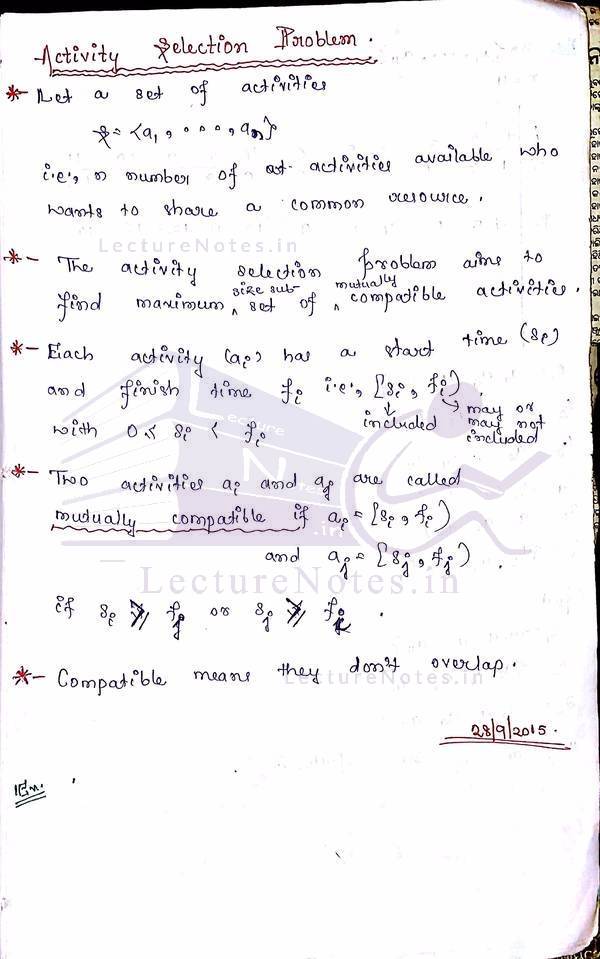 Activity Selection Problem.
*- Let a set of activities
S = {a1, ...., an}
i.e., n number of activities available, who
wants to share a common resource.
LectureNotes.in
*- The activity selection problem aims to
find maximum size sub-set of mutually compatible activities.
*- Each activity (ai) has a start time (si)
and finish time fi i.e., [si, fi)
included may or may not included
with 0 ≤ si < fi
*- Two activities ai and aj are called
mutually compatible if ai = [si, fi)
and aj = [sj, fj)
LectureNotes.in
if si ≥ fj or sj ≥ fi.
*- Compatible means they don't overlap.
LectureNotes.in
28/9/2015.
Ex.